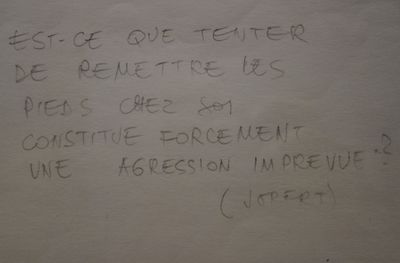 EST-CE QUE TENTER
DE REMETTRE LES
PIEDS CHEZ SOI
CONSTITUE FORCEMENT
UNE AGRESSION IMPREVUE?